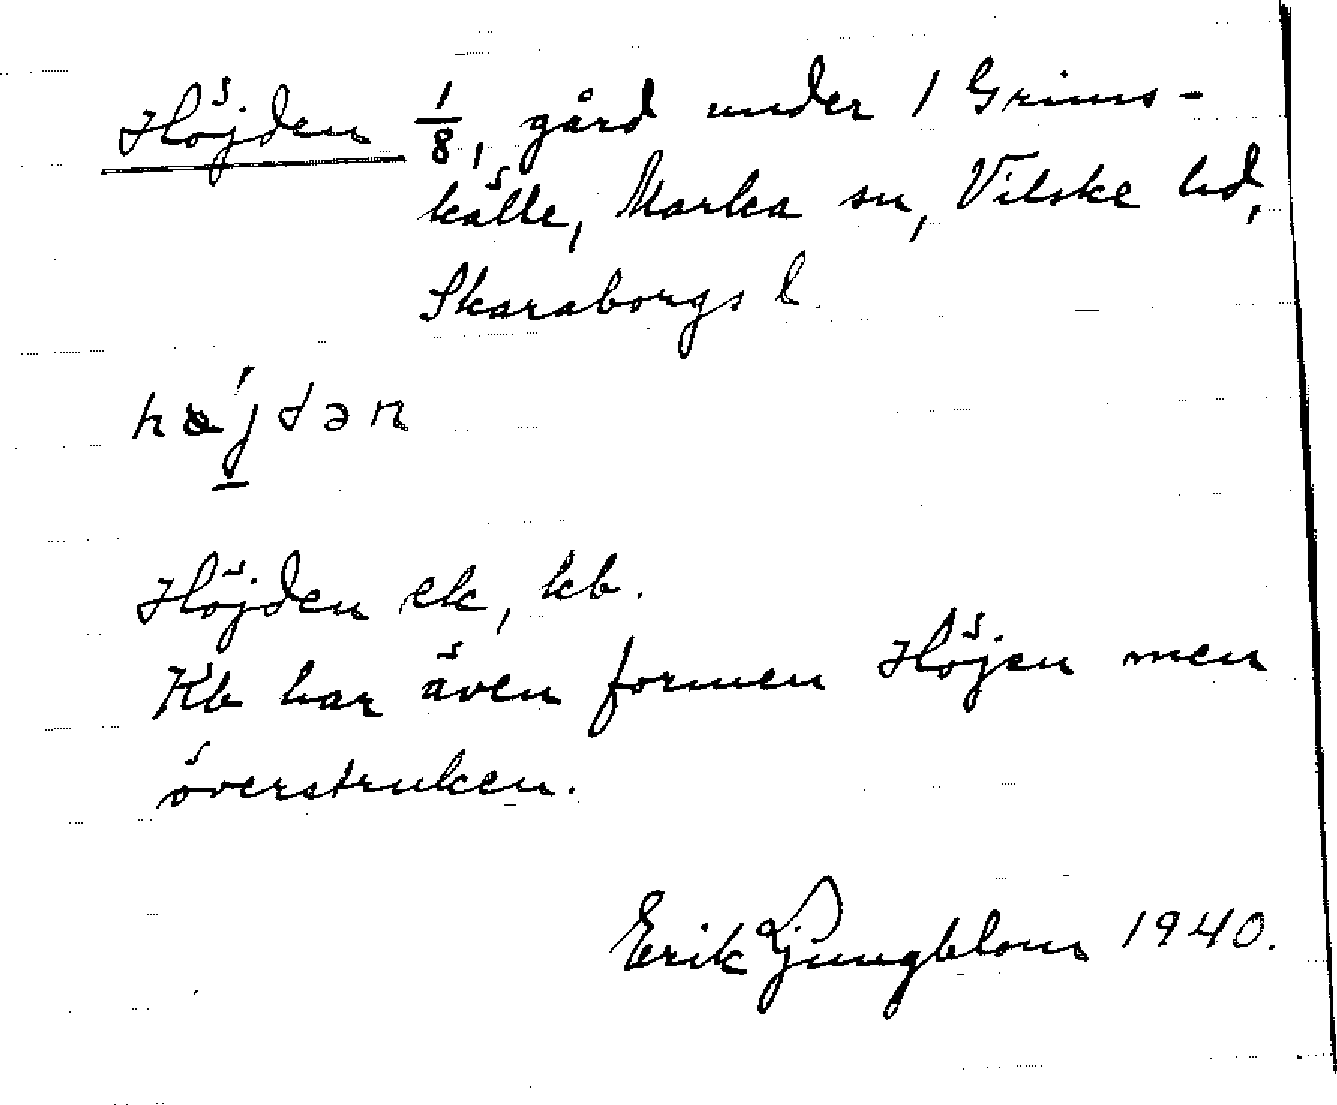 Höjden 1/8, gård under 1 Grims-
källe, Marka sn, Vilske hd,
Skaraborgs l.
Höjden ek, kb.
Kb har även formen Höjen men
överstruken.
Erik Ljungblom 1940.